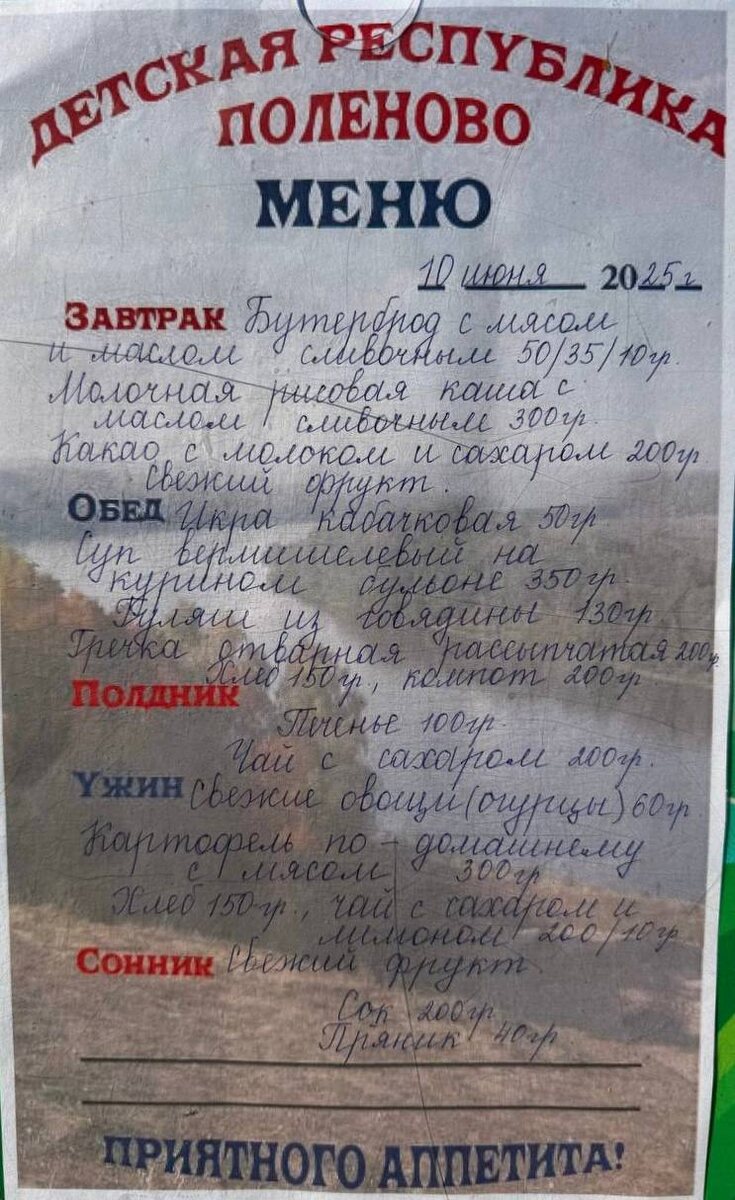 ДЕТСКАЯ РЕСПУБЛИКА
ПОЛЕНОВО
МЕНЮ
10 июня 2025г
ЗАВТРАК Бутерброд с мясом
и маслом сливочным 50/35/10гр.
Молочная рисовая каша с
маслом сливочным 300гр.
Какао с молоком и сахаром 200гр
Свежий фрукт.
ОБЕД Икра кабачковая 50гр.
Суп вермишелевый на
курином бульоне 350гр.
Гуляш из говядины 130гр
Гречка отварная рассыпчатая 200гр.
Хлеб 150гр., компот 200гр.
ПОЛДНИК
Печенье 100гр.
Чай с сахаром 200гр.
УЖИН Свежие овощи (огурцы) 60гр.
Картофель по-домашнему
с мясом 300гр
Хлеб 150гр., чай с сахаром и
лимоном 200/10гр
СОННИК Свежий фрукт
Сок 200гр
Пряник 40гр
ПРИЯТНОГО АППЕТИТА!